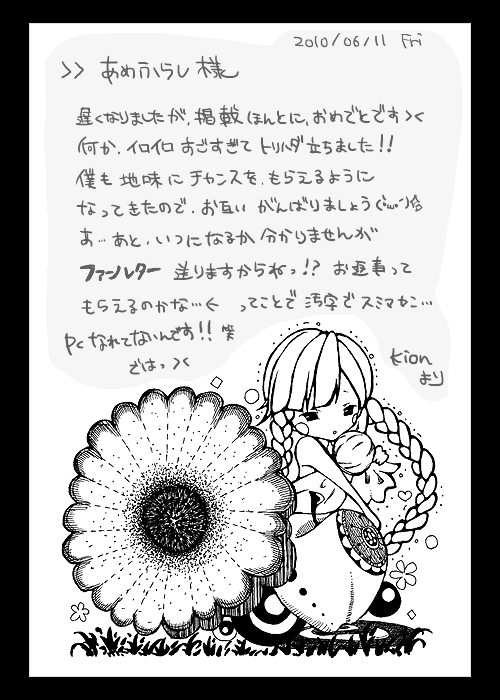 2010/06/11 Fri
>> あめふらし 様
遅くなりましたが、掲載 ほんとに、おめでとです><
何か、イロイロ すごすぎて トリハダ 立ちました!!
僕も 地味に チャンスを、もらえるように
なってきたので、お互い がんばりましょう
あ…あと、いつになるか 分かりませんが
ファンレター 送りますからねっ!? お返事って
もらえるのかな…← ってことで 汚字で スミマセン…
PCなれてないんです!! 笑
では っ ><
Kion
より